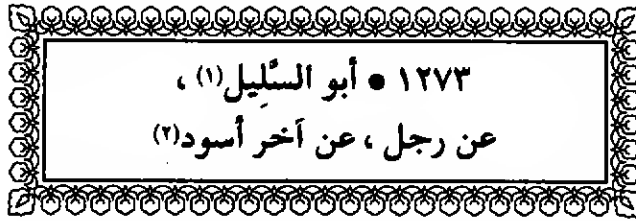 ١٢٧٣ • أبو السَّلِيل(١) ،
عن رجل ، عن آخر أسود(٢)